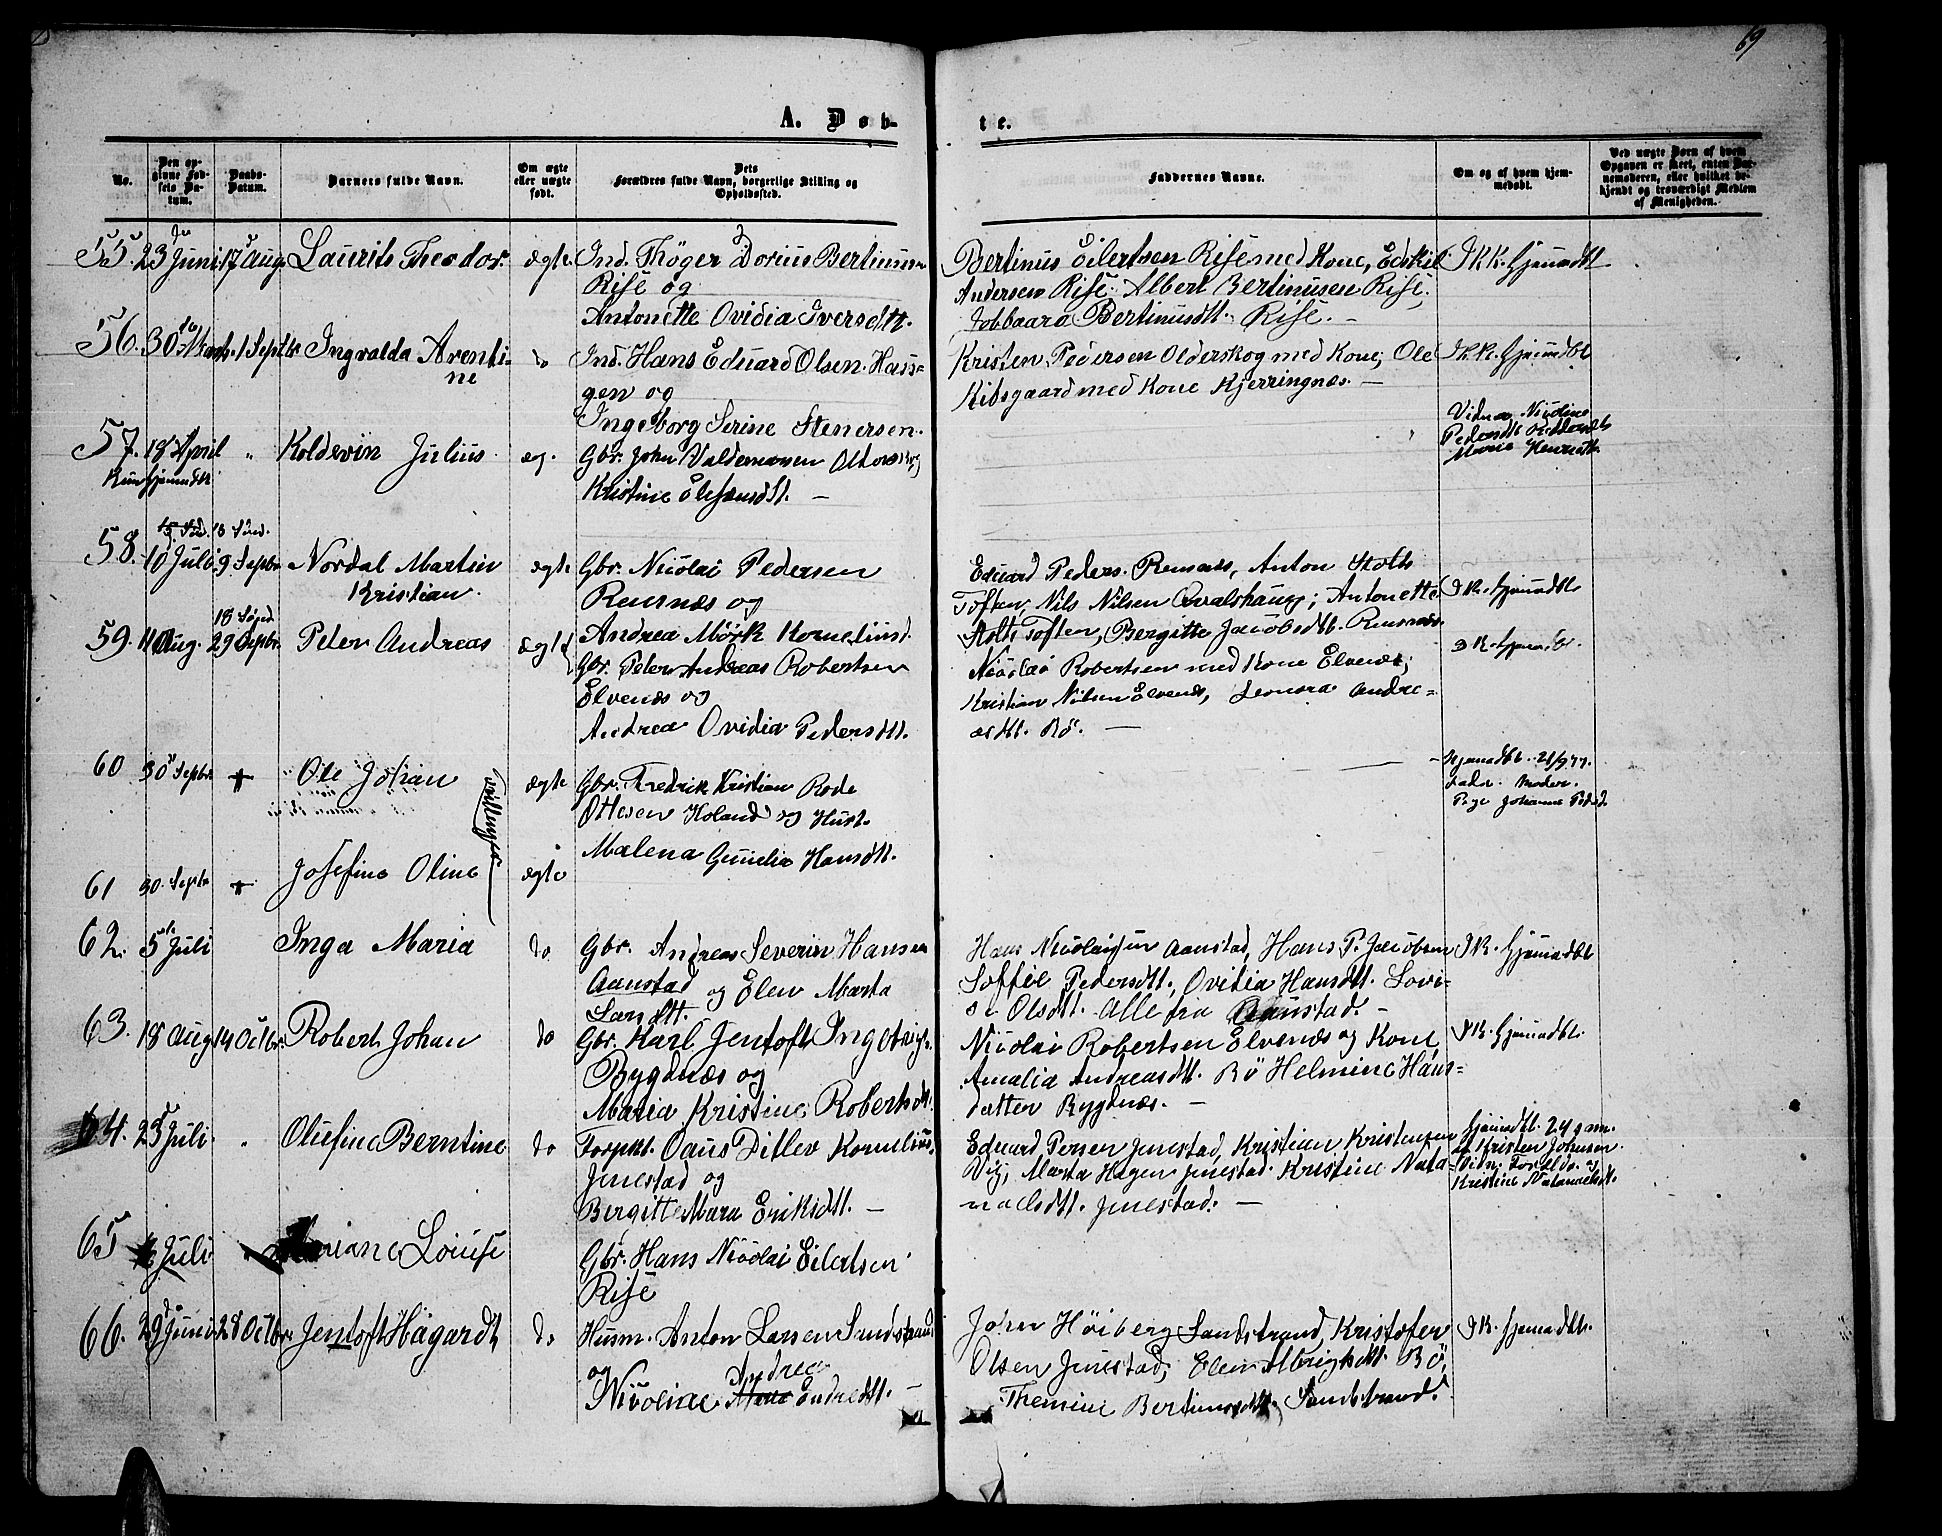 69
A. Døb-
te.
No.
Den opgivne Fødsels Datum.
Daabs-Datum.
Barnets fulde Navn.
Om ægte eller uægte født.
Dets Forældres fulde Navn, borgerlige Stilling og Opholdssted.
Faddernes Navne.
Om og af hvem hjemmedøbt.
Ved uægte Børn af hvem Opgaven er skeet, enten Barnemoderen, eller hvilket bekjendt og troværdigt Medlem af Menigheden.
55. 23 Juni 17 Aug. Laurits Theodor. ægte. Ind. Thøger Dorius Bertinus-
Rise og
Antonette Ovidia Iversdtt.
Bertinus Eilertsen Rise med Kone, Edskil
Andersen Rise. Albert Bertinusen Rise.
Bertinusdtt. Rise. —
I K. K. hjemmdbt
56. 30 1 Septbr Ingvalda Aventi-
ne
do Ind. Hans Eduard Olsen Hass-
gen og
Ingeborg Serine Stenersen.
Kristen Pedersen Olderskog med Kone, Ole
Kibsgaard med Kone Kjerringnæs. —
I K. hjemmdbt
57. 18 April " Koldevin Julius æg. Gbr. John Valdemarsen
Kristine —
Kun hjemmdbt
Vidner Nicoline
Pedersdtt
Marie Henrikdtt.
58. 10 Juli 9 Septbr Nordal Martin
Kristian.
ægte Gbr. Nicolai Pedersen
Rensnæs og
Andrea Mørk Korneliusd.
Eduard Peders. Rensnæs, Anton Stolts
Toften, Nils Nilsen Qvalshaug; Antonette
Stolts Toften, Bergitte Jacobsdtt. Rensnæs
I K. hjemmdbt.
18 Sønd.
59. 11 Aug. 29 Septbr. Peter Andreas ægte Gbr. Peter Andreas Robertsen
Elvenæs og
Andrea Ovidia Pedersdtt.
Nicolai Robertsen med Kone Elvenæs;
Kristian Nilsen Elvenæs, Leonora Andre-
æsdtt. Bö. —
I K. hjemmdbt.
60 30 Septbr + Ole Johan ægte Gbr. Fredrik Kristian Rode
Ottesen Holand og Hust.
Malena Gunelia Hansdtt.
Hjemmdbt. 21/9 77.
Moder.
Pige Johanna
tvillinger
61 30. Septbr + Josefine Oline ægte
62. 5 Juli Inga Maria do Gbr. Andreas Severin Hansen
Aanstad og Elen Marta
Larsdtt.
Hans Nicolaisen Aanstad, Hans P. Jacobsen
Soffie Pedersdtt., Ovidia Hansdtt. Lovi-
se Olsdtt. Alle fra Aanstad. —
I K. hjemmdbt
63. 18 Aug 14 Octbr. Robert Johan do Gbr. Karl Jentoft Ingebrigts.
Bygdnæs og
Maria Kristine Robertsdt.
Nicolai Robertsen Elvenæs og Kone,
Amalia Andreasdtt. Bö Helmine Hans-
datter Bygdnæs. —
I K. hjemmdbt.
64. 25 Juli. " Olufine Berntine do Forpkt. Daus Ditlev Kornelius.
Jnestad og
Bergitte Mara Eriksdtt. —
Eduard Persen Jnestad, Kristian Kristensen
Vig, Marta Hagen Jnestad. Kristine Nata-
naelsdtt. Jnestad. —
hjemmdbt. 24 g am.
af Kristen Johnsen
Vidn. Foreldr. og
Kristine Natanaelsdt.
65 Juli Louise Gbr. Hans Nicolai Eilertsen
Rise
66. 29 Juni 28 Octbr. Jentoft Hagardt do Husm. Anton Larsen Sandstrand
og Andrea
Nicoline Endredtt. —
John Höiberg Sandstrand, Kristofer
Olsen Jnestad, Elen Albrigtsdtt. Bö,
Themine Bertinusdtt. Sandstrand.
I K. hjemmdbt.